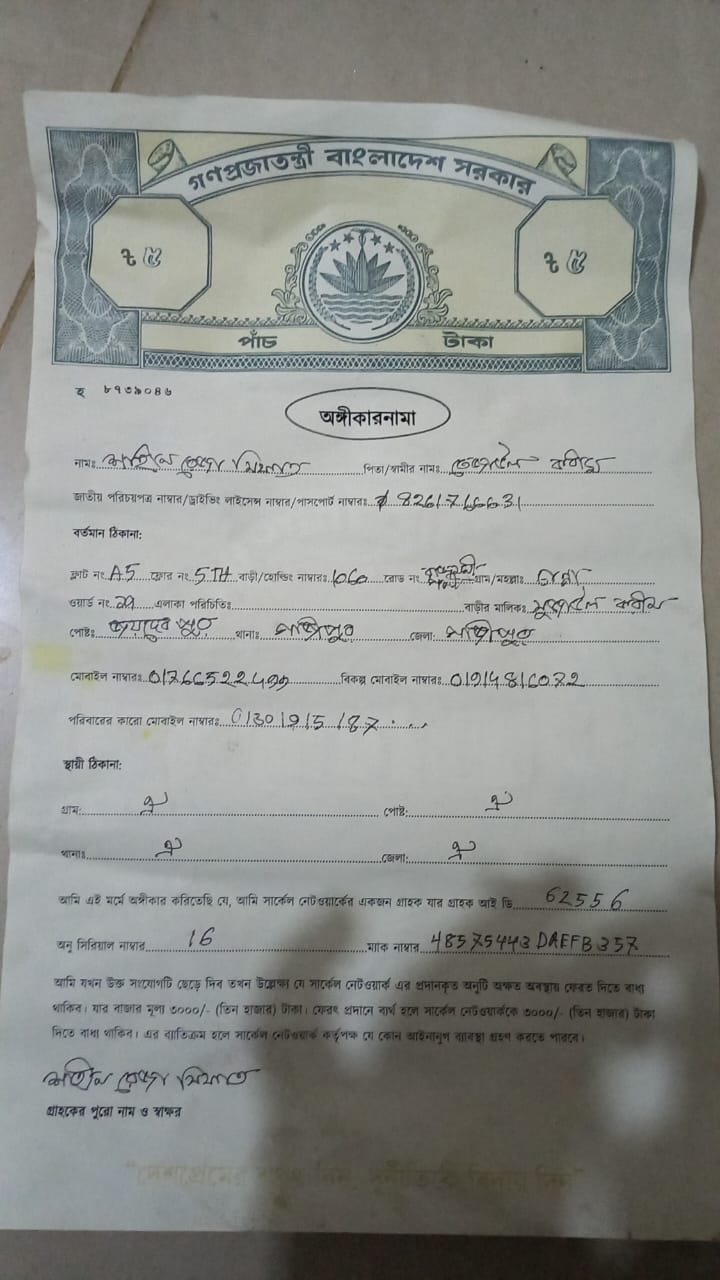 গণপ্রজাতন্ত্রী বাংলাদেশ সরকার
৳ ৫ ৳ ৫
পাঁচ টাকা
হ ৮৭৩৯০৪৬
অঙ্গীকারনামা
নামঃ পিতা/স্বামীর নামঃ
জাতীয় পরিচয়পত্র নাম্বার/ড্রাইভিং লাইসেন্স নাম্বার/পাসপোর্ট নাম্বারঃ 8261766631
বর্তমান ঠিকানা:
ফ্লাট নং A5 ফ্লোর নং 5TH বাড়ী/হোল্ডিং নাম্বারঃ 1060 রোড নং গ্রাম/মহল্লাঃ
ওয়ার্ড নং এলাকা পরিচিতিঃ বাড়ীর মালিকঃ
পোষ্টঃ জয়দেবপুর থানাঃ গাজীপুর জেলা: গাজীপুর
মোবাইল নাম্বারঃ বিকল্প মোবাইল নাম্বারঃ 01914816072
পরিবারের কারো মোবাইল নাম্বারঃ
স্থায়ী ঠিকানা:
গ্রাম: ঐ পোষ্ট: ঐ
থানাঃ ঐ জেলা: ঐ
আমি এই মর্মে অঙ্গীকার করিতেছি যে, আমি সার্কেল নেটওয়ার্কের একজন গ্রাহক যার গ্রাহক আই ডি 62556
অনু সিরিয়াল নাম্বার 16 ম্যাক নাম্বার 48575443DAEFB357
আমি যখন উক্ত সংযোগটি ছেড়ে দিব তখন উল্লেক্ষ্য যে সার্কেল নেটওয়ার্ক এর প্রদানকৃত অনুটি অক্ষত অবস্থায় ফেরত দিতে বাধ্য
থাকিব। যার বাজার মূল্য ৩০০০/- (তিন হাজার) টাকা। ফেরৎ প্রদানে ব্যর্থ হলে সার্কেল নেটওয়ার্ককে ৩০০০/- (তিন হাজার) টাকা
দিতে বাধ্য থাকিব। এর ব্যতিক্রম হলে সার্কেল নেটওয়ার্ক কর্তৃপক্ষ যে কোন আইনানুগ ব্যবস্থা গ্রহণ করতে পারবে।
গ্রাহকের পুরো নাম ও স্বাক্ষর
"দেশপ্রেমের শপথ নিন, দুর্নীতিকে বিদায় দিন"